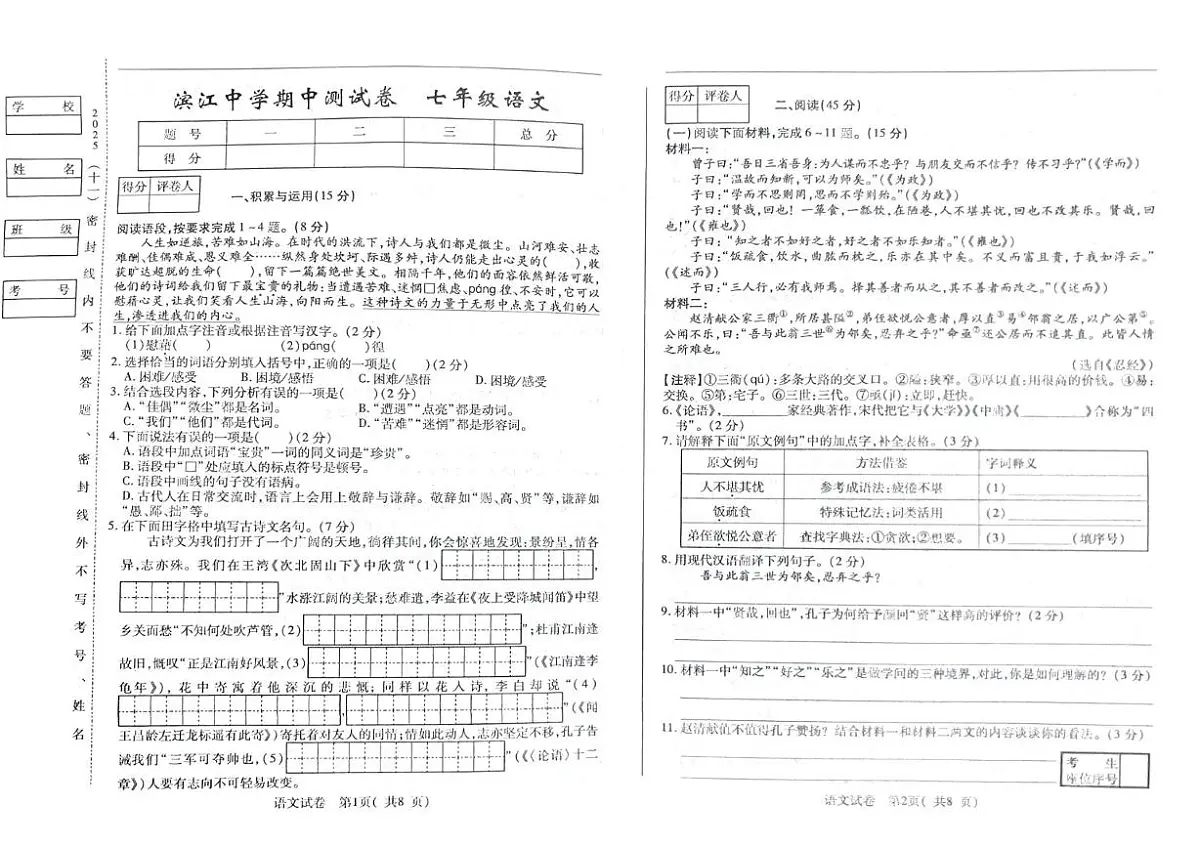 学 校
姓 名
班 级
考 号
2025(十一)密封线内不要答题、密封线外不写考号、姓名
滨江中学期中测试卷 七年级语文
题 号 一 二 三 总 分
得 分
得分 评卷人
一、积累与运用(15分)
阅读语段,按要求完成1~4题。(8分)
人生如逆旅,苦难如山海。在时代的洪流下,诗人与我们都是微尘。山河难安、壮志
难酬、佳偶难成、恩义难全……纵然身处坎坷、际遇多舛,诗人仍能走出心灵的( ),收
获旷达超脱的生命( ),留下一篇篇绝世美文。相隔千年,他们的面容依然鲜活可敬,
他们的诗词给我们留下最宝贵的礼物:当遭遇苦难、迷惘□焦虑、pánɡ徨、不安时,它可以
慰藉心灵,让我们笑看人生山海,向阳而生。这种诗文的力量于无形中点亮了我们的人
生,渗透进我们的内心。
1. 给下面加点字注音或根据注音写汉字。(2分)
(1)慰藉( ) (2)pánɡ( )徨
2. 选择恰当的词语分别填入括号中,正确的一项是( )(2分)
A. 困难/感受 B. 困境/感悟 C. 困难/感悟 D. 困境/感受
3. 结合选段内容,下列分析有误的一项是( )(2分)
A. “佳偶”“微尘”都是名词。 B. “遭遇”“点亮”都是动词。
C. “我们”“他们”都是代词。 D. “苦难”“迷惘”都是形容词。
4. 下面说法有误的一项是( )(2分)
A. 语段中加点词语“宝贵”一词的同义词是“珍贵”。
B. 语段中“□”处应填入的标点符号是顿号。
C. 语段中画线的句子没有语病。
D. 古代人在日常交流时,语言上会用上敬辞与谦辞。敬辞如“愚、高、贤”等,谦辞如
“愚、鄙、拙”等。
5. 在下面田字格中填写古诗文名句。(7分)
古诗文为我们打开了一个广阔的天地,徜徉其间,你会惊喜地发现:景纷呈,情各
异,志亦殊。我们在王湾《次北固山下》中欣赏“(1) ,
”水涨江阔的美景;愁难遣,李益在《夜上受降城闻笛》中望
乡关而愁“不知何处吹芦管,(2) ”;杜甫江南逢
故旧,慨叹“正是江南好风景,(3) ”(《江南逢李
龟年》),花中寄寓着他深沉的悲慨;同样以花入诗,李白却说“(4)
, ”(《闻
王昌龄左迁龙标遥有此寄》)寄托着对友人的同情;情如此动人,志亦坚定不移,孔子告
诫我们“三军可夺帅也,(5) ”(《〈论语〉十二
章》)人要有志向不可轻易改变。
语文试卷 第1页( 共8 页)
得分 评卷人
二、阅读(45分)
(一)阅读下面材料,完成6~11题。(15分)
材料一:
曾子曰:“吾日三省吾身:为人谋而不忠乎?与朋友交而不信乎?传不习乎?”(《学而》)
子曰:“温故而知新,可以为师矣。”(《为政》)
子曰:“学而不思则罔,思而不学则殆。”(《为政》)
子曰:“贤哉,回也!一箪食,一瓢饮,在陋巷,人不堪其忧,回也不改其乐。贤哉,回
也!”(《雍也》)
子曰:“知之者不如好之者,好之者不如乐知者。”(《雍也》)
子曰:“饭疏食,饮水,曲肱而枕之,乐亦在其中矣。不义而富且贵,于我如浮云。”
(《述而》)
子曰:“三人行,必有我师焉。择其善者而从之,其不善者而改之。”(《述而》)
材料二:
赵清献公家三衢①,所居甚隘②,弟侄欲悦公意者,厚以直③易④邻翁之居,以广公第⑤。
公闻不乐,曰:“吾与此翁三世⑥为邻矣,忍弃之乎?”命亟⑦还公居而不追其直。此皆人情
之所难也。
(选自《忍经》)
【注释】①三衢(qú):多条大路的交叉口。②隘:狭窄。③厚以直:用很高的价钱。④易:
交换。⑤第:宅子。⑥三世:三代。⑦亟(jí):立即,赶快。
6. 《论语》,________家经典著作,宋代把它与《大学》《中庸》《________》合称为“四
书”。(2分)
7. 请解释下面“原文例句”中的加点字,补全表格。(3分)
原文例句 方法借鉴 字词释义
人不堪其忧 参考成语法:疲倦不堪 (1)________
饭疏食 特殊记忆法:词类活用 (2)________
弟侄欲悦公意者 查找字典法:①贪欲;②想要。 (3)________(填序号)
8. 用现代汉语翻译下列句子。(2分)
吾与此翁三世为邻矣,忍弃之乎?
9. 材料一中“贤哉,回也”,孔子为何给予颜回“贤”这样高的评价?(2分)
10. 材料一中“知之”“好之”“乐之”是做学问的三种境界,对此,你是如何理解的?(3分)
11. 赵清献值不值得孔子赞扬?结合材料一和材料二两文的内容谈谈你的看法。(3分)
考 生
座位序号
语文试卷 第2页( 共8 页)